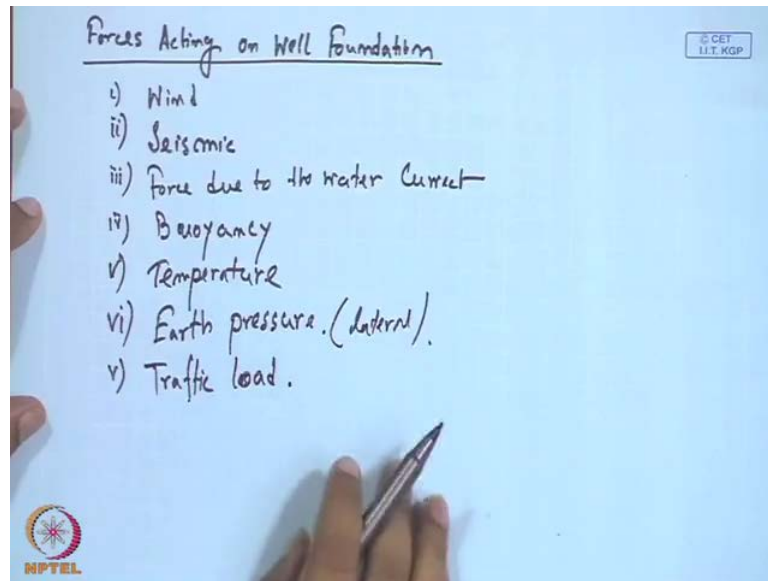 Forces Acting on Well Foundation
© CET
I.I.T. KGP
i) Wind
ii) Seismic
iii) Force due to the water Current
iv) Buoyancy
v) Temperature
vi) Earth pressure. (lateral).
v) Traffic load.
NPTEL